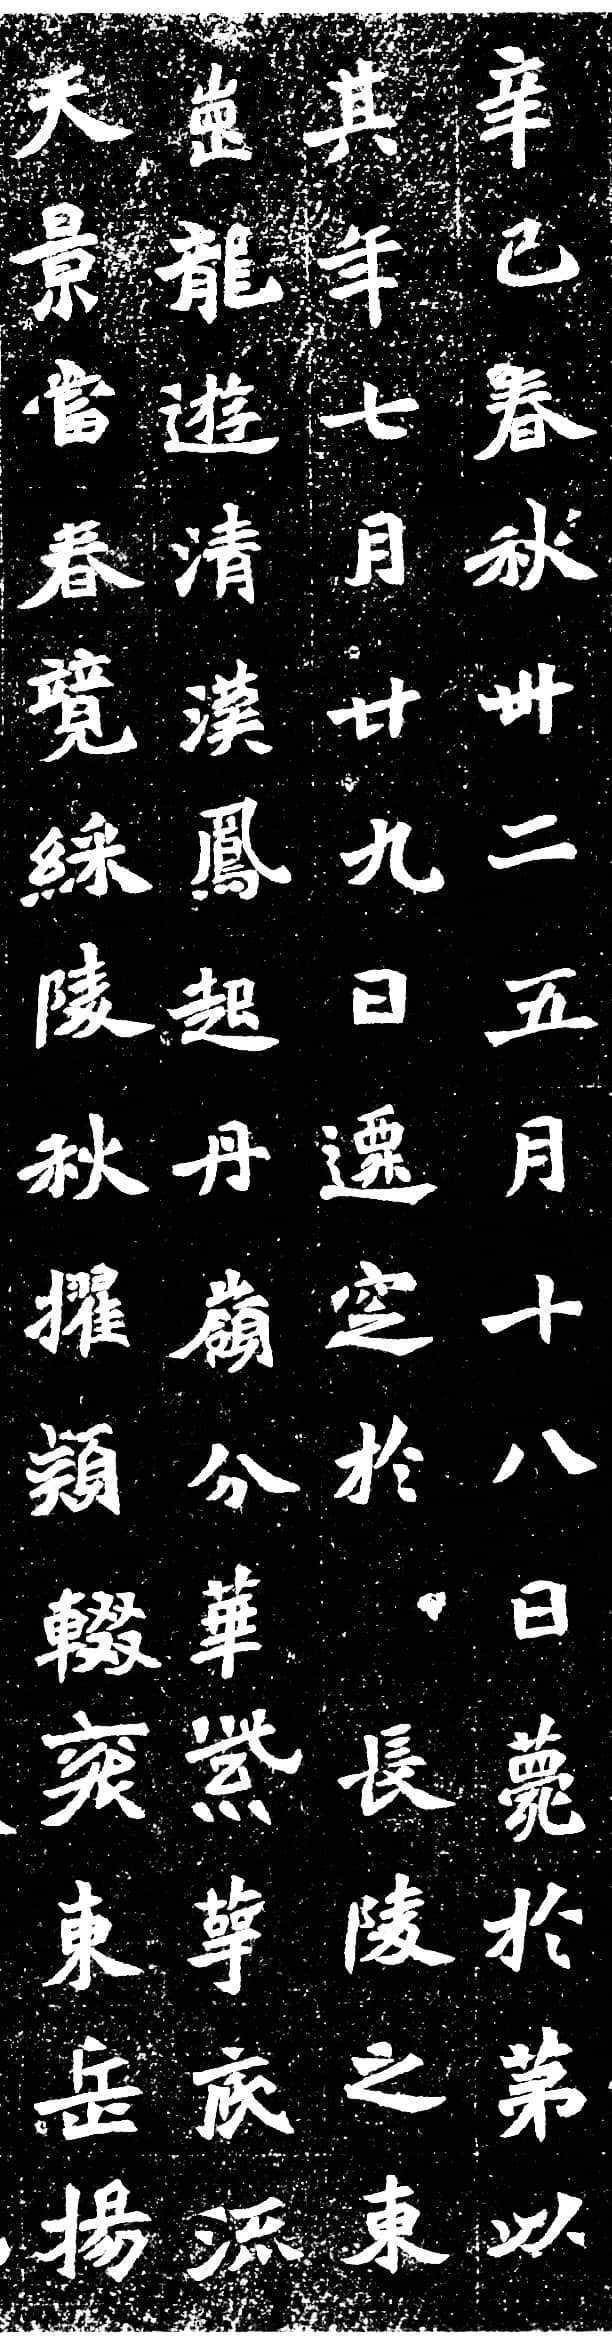 辛巳春秋卅二五月十八日薨於第以
其年七月廿九日遷窆於 長陵之東
崗龍遊清漢鳳起丹嶺分華紫萼派
天景當春競綵陵秋擢穎輟奕東岳揚